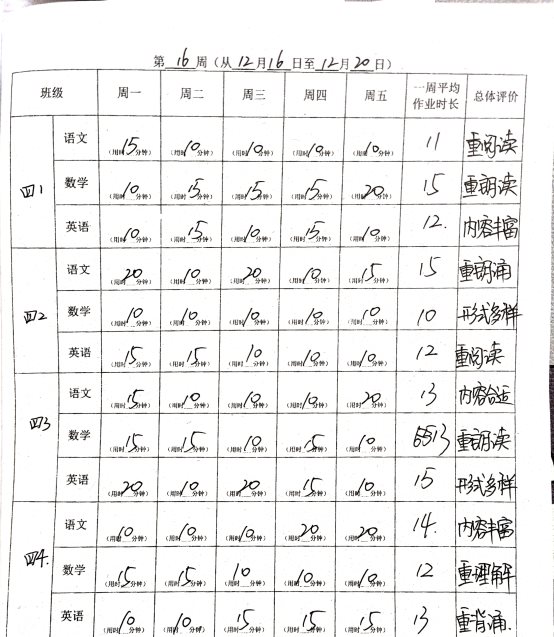 第 16 周（从 12 月 16 日至 12 月 20 日）
班级 周一 周二 周三 周四 周五 一周平均作业时长 总体评价
四1 语文 （用时15分钟） （用时10分钟） （用时10分钟） （用时10分钟） （用时10分钟） 11 重阅读
数学 （用时10分钟） （用时15分钟） （用时15分钟） （用时15分钟） （用时20分钟） 15 重朗读
英语 （用时10分钟） （用时15分钟） （用时10分钟） （用时15分钟） （用时10分钟） 12. 内容丰富
四2 语文 （用时20分钟） （用时10分钟） （用时20分钟） （用时10分钟） （用时15分钟） 15 重朗诵
数学 （用时10分钟） （用时10分钟） （用时10分钟） （用时10分钟） （用时10分钟） 10 形式多样
英语 （用时15分钟） （用时15分钟） （用时10分钟） （用时10分钟） （用时10分钟） 12 重阅读
四3 语文 （用时15分钟） （用时10分钟） （用时10分钟） （用时10分钟） （用时20分钟） 13 内容合适
数学 （用时15分钟） （用时15分钟） （用时10分钟） （用时15分钟） （用时10分钟） 13 重朗读
英语 （用时20分钟） （用时10分钟） （用时20分钟） （用时15分钟） （用时10分钟） 15 形式多样
四4. 语文 （用时10分钟） （用时10分钟） （用时10分钟） （用时20分钟） （用时20分钟） 14. 内容丰富
数学 （用时15分钟） （用时15分钟） （用时10分钟） （用时10分钟） （用时10分钟） 12 重理解
英语 （用时10分钟） （用时10分钟） （用时15分钟） （用时15分钟） （用时15分钟） 13 重背诵.